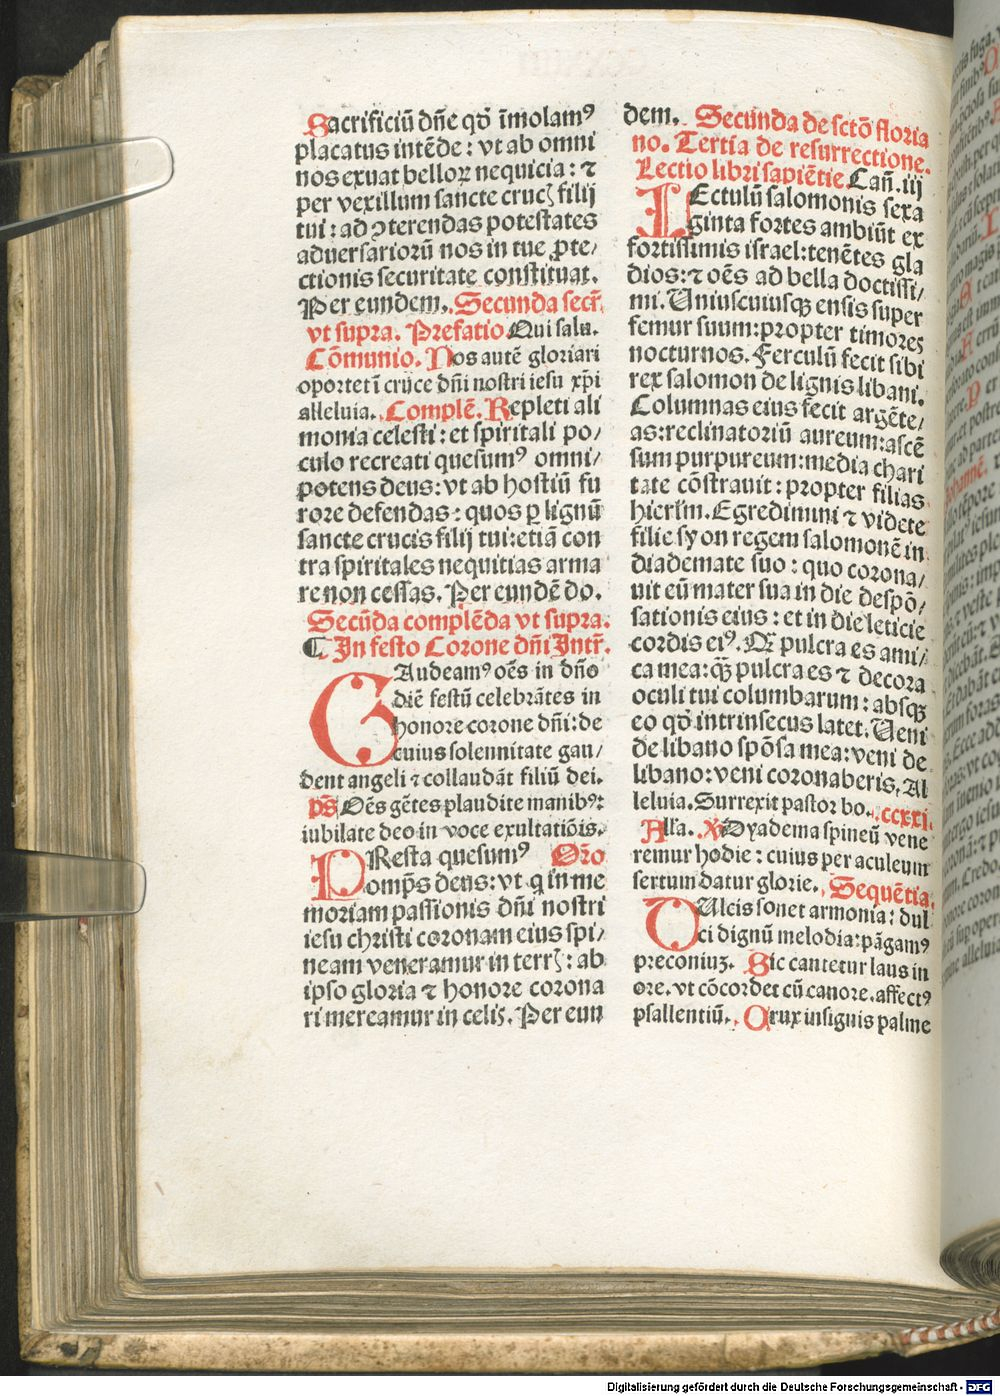 Sacrificiū dñe qđ īmolamꝰ
placatus intēde: vt ab omni
nos exuat belloꝝ nequicia: ⁊
per vexillum sancte crucꝭ filij
tui: ad ꝯterendas potestates
aduersariorū nos in tue ꝓte/
ctionis securitate constituat.
Per eundem. Secunda secr̄
vt supra. Prefatio Qui salu.
Cōmunio. Nos autē gloriari
oportet ī cruce dñi nostri iesu xp̄i
alleluia. Complē. Repleti ali
monia celesti: et spiritali po/
culo recreati quesumꝰ omni/
potens deus: vt ab hostiū fu
rore defendas: quos ꝑ lignū
sancte crucis filij tui: etiā con
tra spiritales nequitias arma
re non cessas. Per eundē do.
Secūda complēda vt supra.
¶ In festo Corone dñi Intr̄.
GAudeamꝰ oēs in dño
diē festū celebrātes in
honore corone dñi: de
cuius solennitate gau/
dent angeli ⁊ collaudāt filiū dei.
p̄s Oēs gētes plaudite manibꝰ:
iubilate deo in voce exultatiōis.
PResta quesumꝰ Or̄o
omp̄s deus: vt q̇ in me
moriam passionis dñi nostri
iesu christi coronam eius spi/
neam veneramur in terrꝭ: ab
ipso gloria ⁊ honore corona
ri mereamur in celis. Per eun
dem. Secunda de sctō floria
no. Tertia de resurrectione.
Lectio libri sapiētie Cañ. iij
LEctulū salomonis sexa
ginta fortes ambiūt ex
fortissimis israel: tenētes gla
dios: ⁊ oēs ad bella doctissi/
mi. Uniuscuiusqꝫ ensis super
femur suum: propter timores
nocturnos. Ferculū fecit sibi
rex salomon de lignis libani.
Columnas eius fecit argēte/
as: reclinatoriū aureum: ascē
sum purpureum: media chari
tate cōstrauit: propter filias
hierlm̄. Egredimini ⁊ videte
filie syon regem salomonē in
diademate suo: quo corona/
uit eū mater sua in die despō/
sationis eius: et in die leticie
cordis eiꝰ. Qꝫ pulcra es ami/
ca mea: qꝫ̄ pulcra es ⁊ decora
oculi tui columbarum: absqꝫ
eo qđ intrinsecus latet. Ueni
de libano spōsa mea: veni de
libano: veni coronaberis, Al
leluia. Surrexit pastor bo. ccxxj.
Alľa. ℣ Dyadema spineū vene
remur hodie: cuius per aculeum
sertum datur glorie. Sequētia.
DUlcis sonet armonia: dul
ci dignū melodia: pāgamꝰ
preconiuꝫ. Sic cantetur laus in
ore. vt cōcordet cū canore. affectꝰ
psallentiū. Crux insignis palme
Digitalisierung gefördert durch die Deutsche Forschungsgemeinschaft - DFG